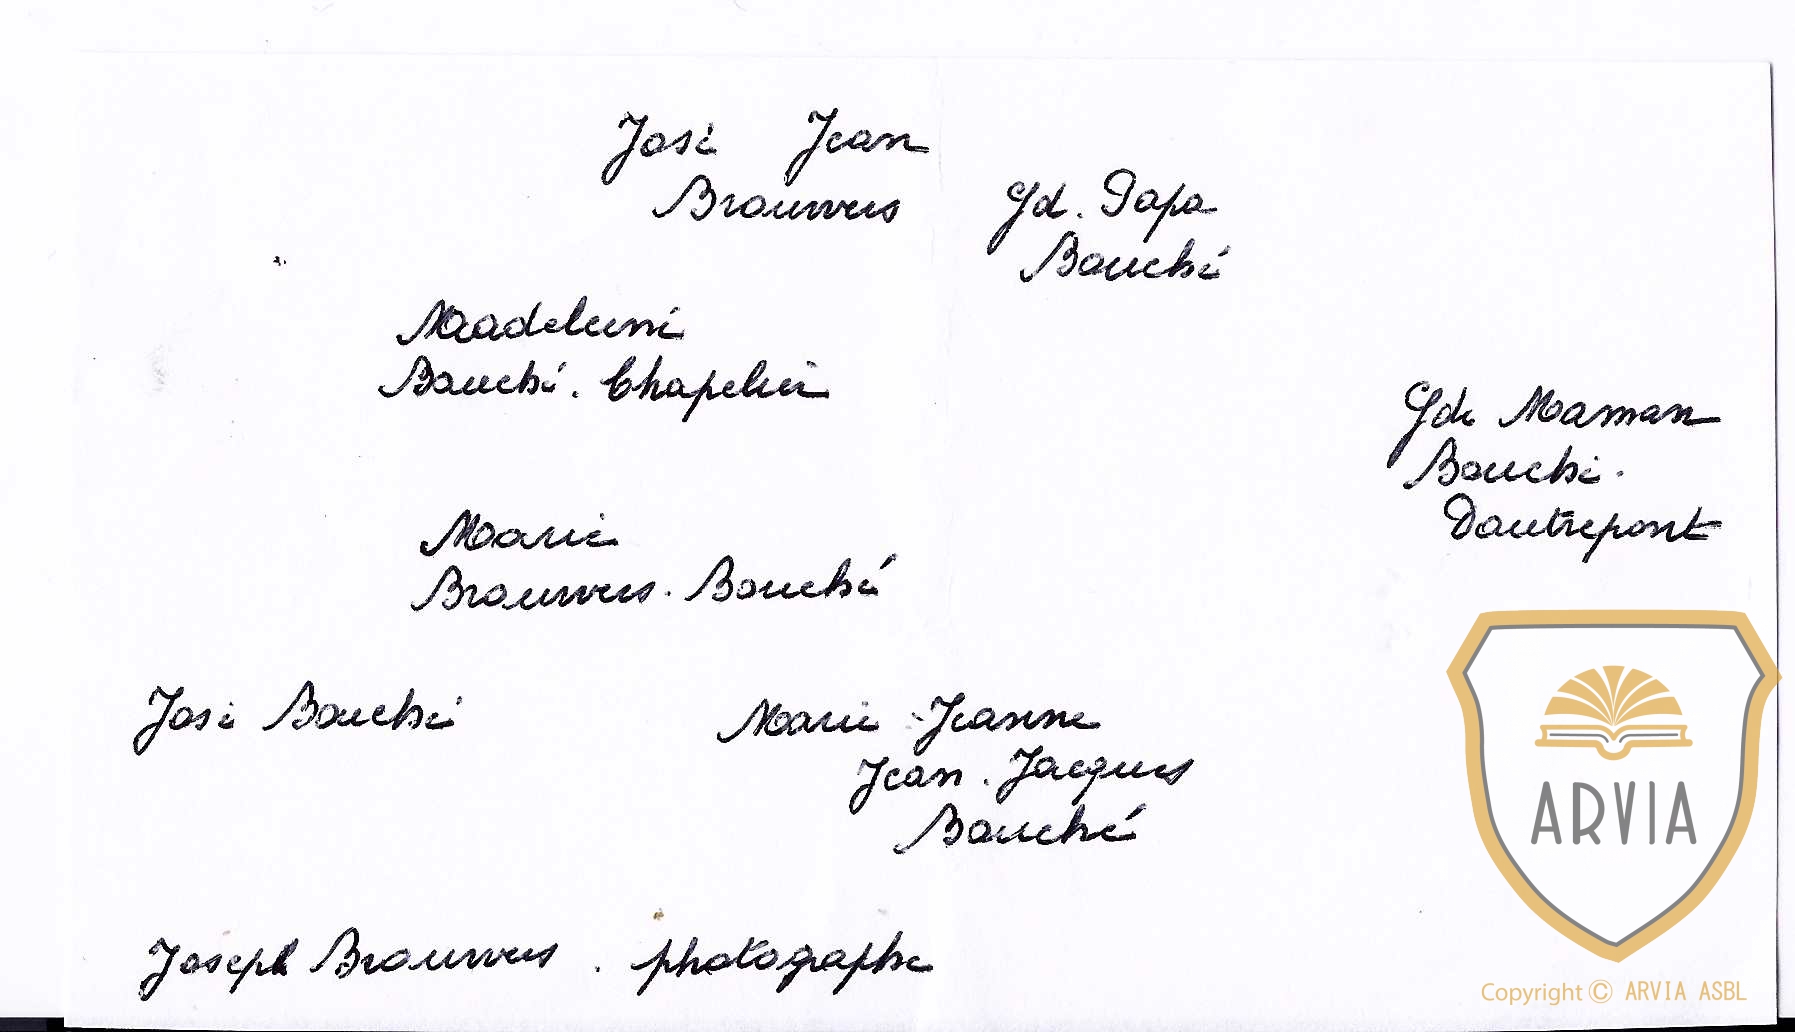 José Jean
Brouwers
Gd. Papa
Bouché
Madeleine
Bouché. Chapelier
Gde Maman
Bouché.
Dautrepont
Marie
Brouwers. Bouché
José Bouché
Marie Jeanne
Jean. Jacques
Bouché
Joseph Brouwers. photographe
ARVIA
Copyright © ARVIA ASBL